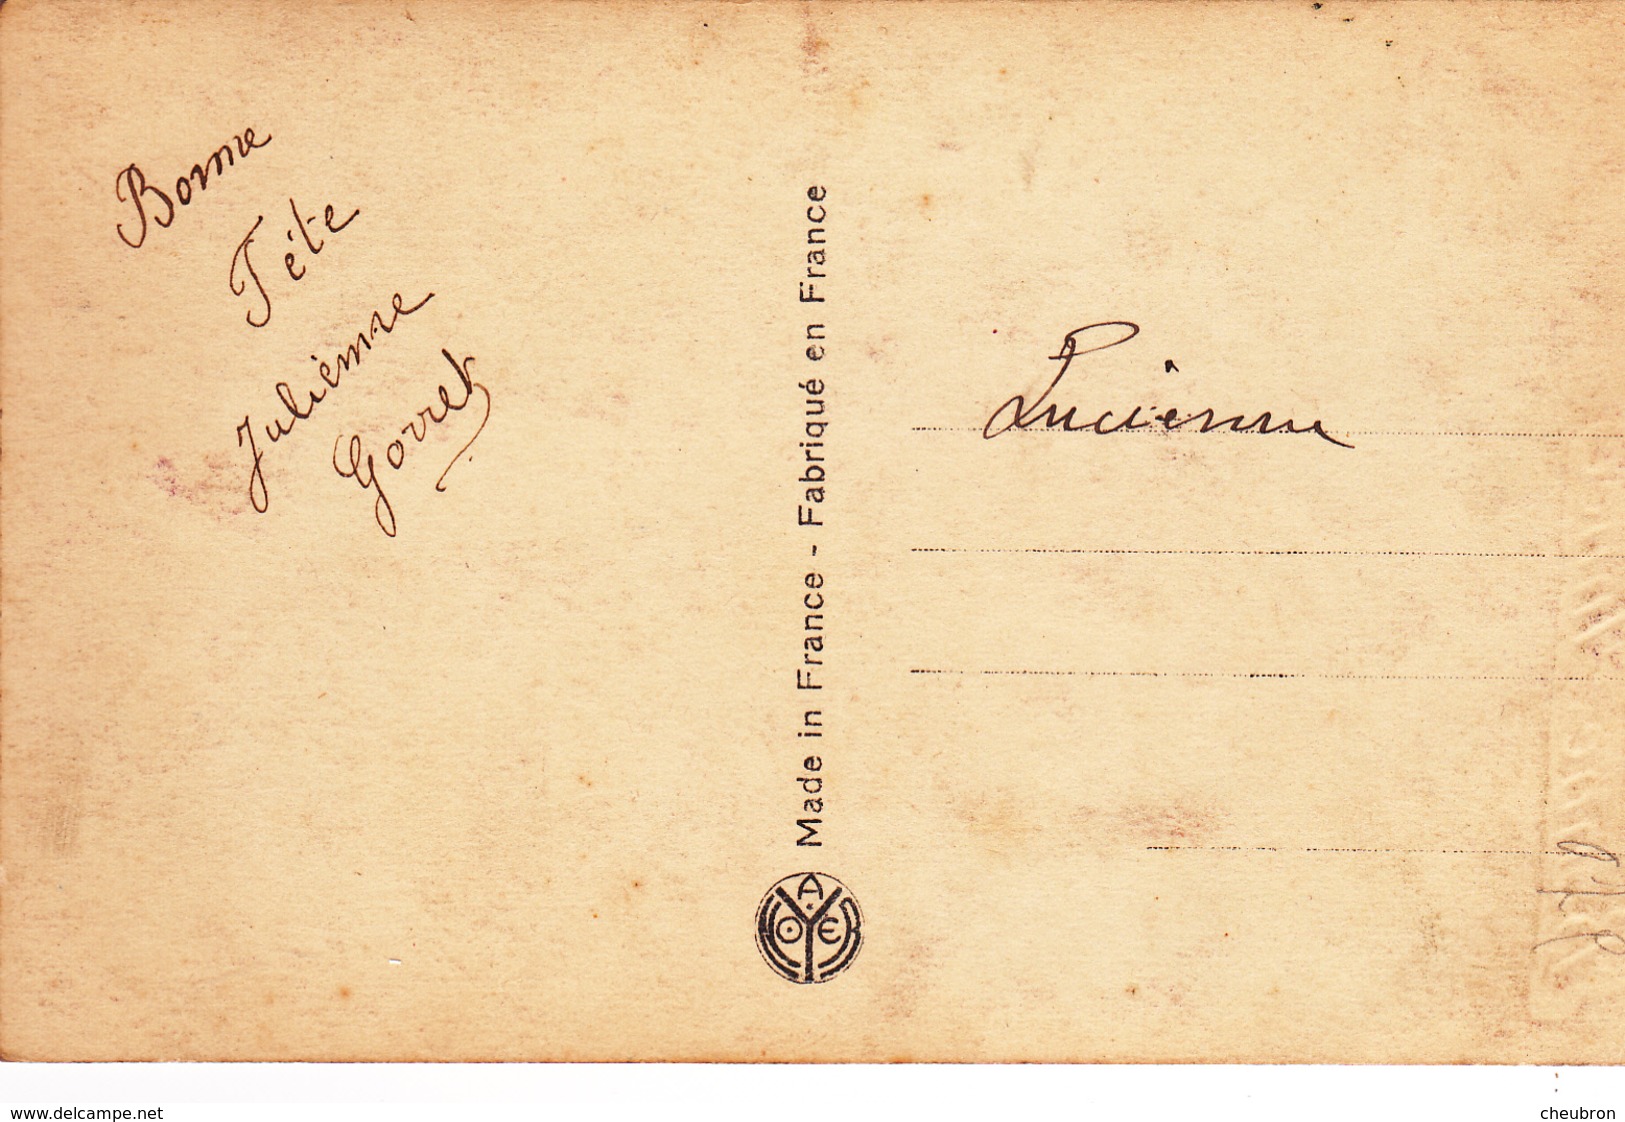 Bonne
Fête
Julienne
Gorret
Made in France - Fabriqué en France
Lucienne
www.delcampe.net
cheubron